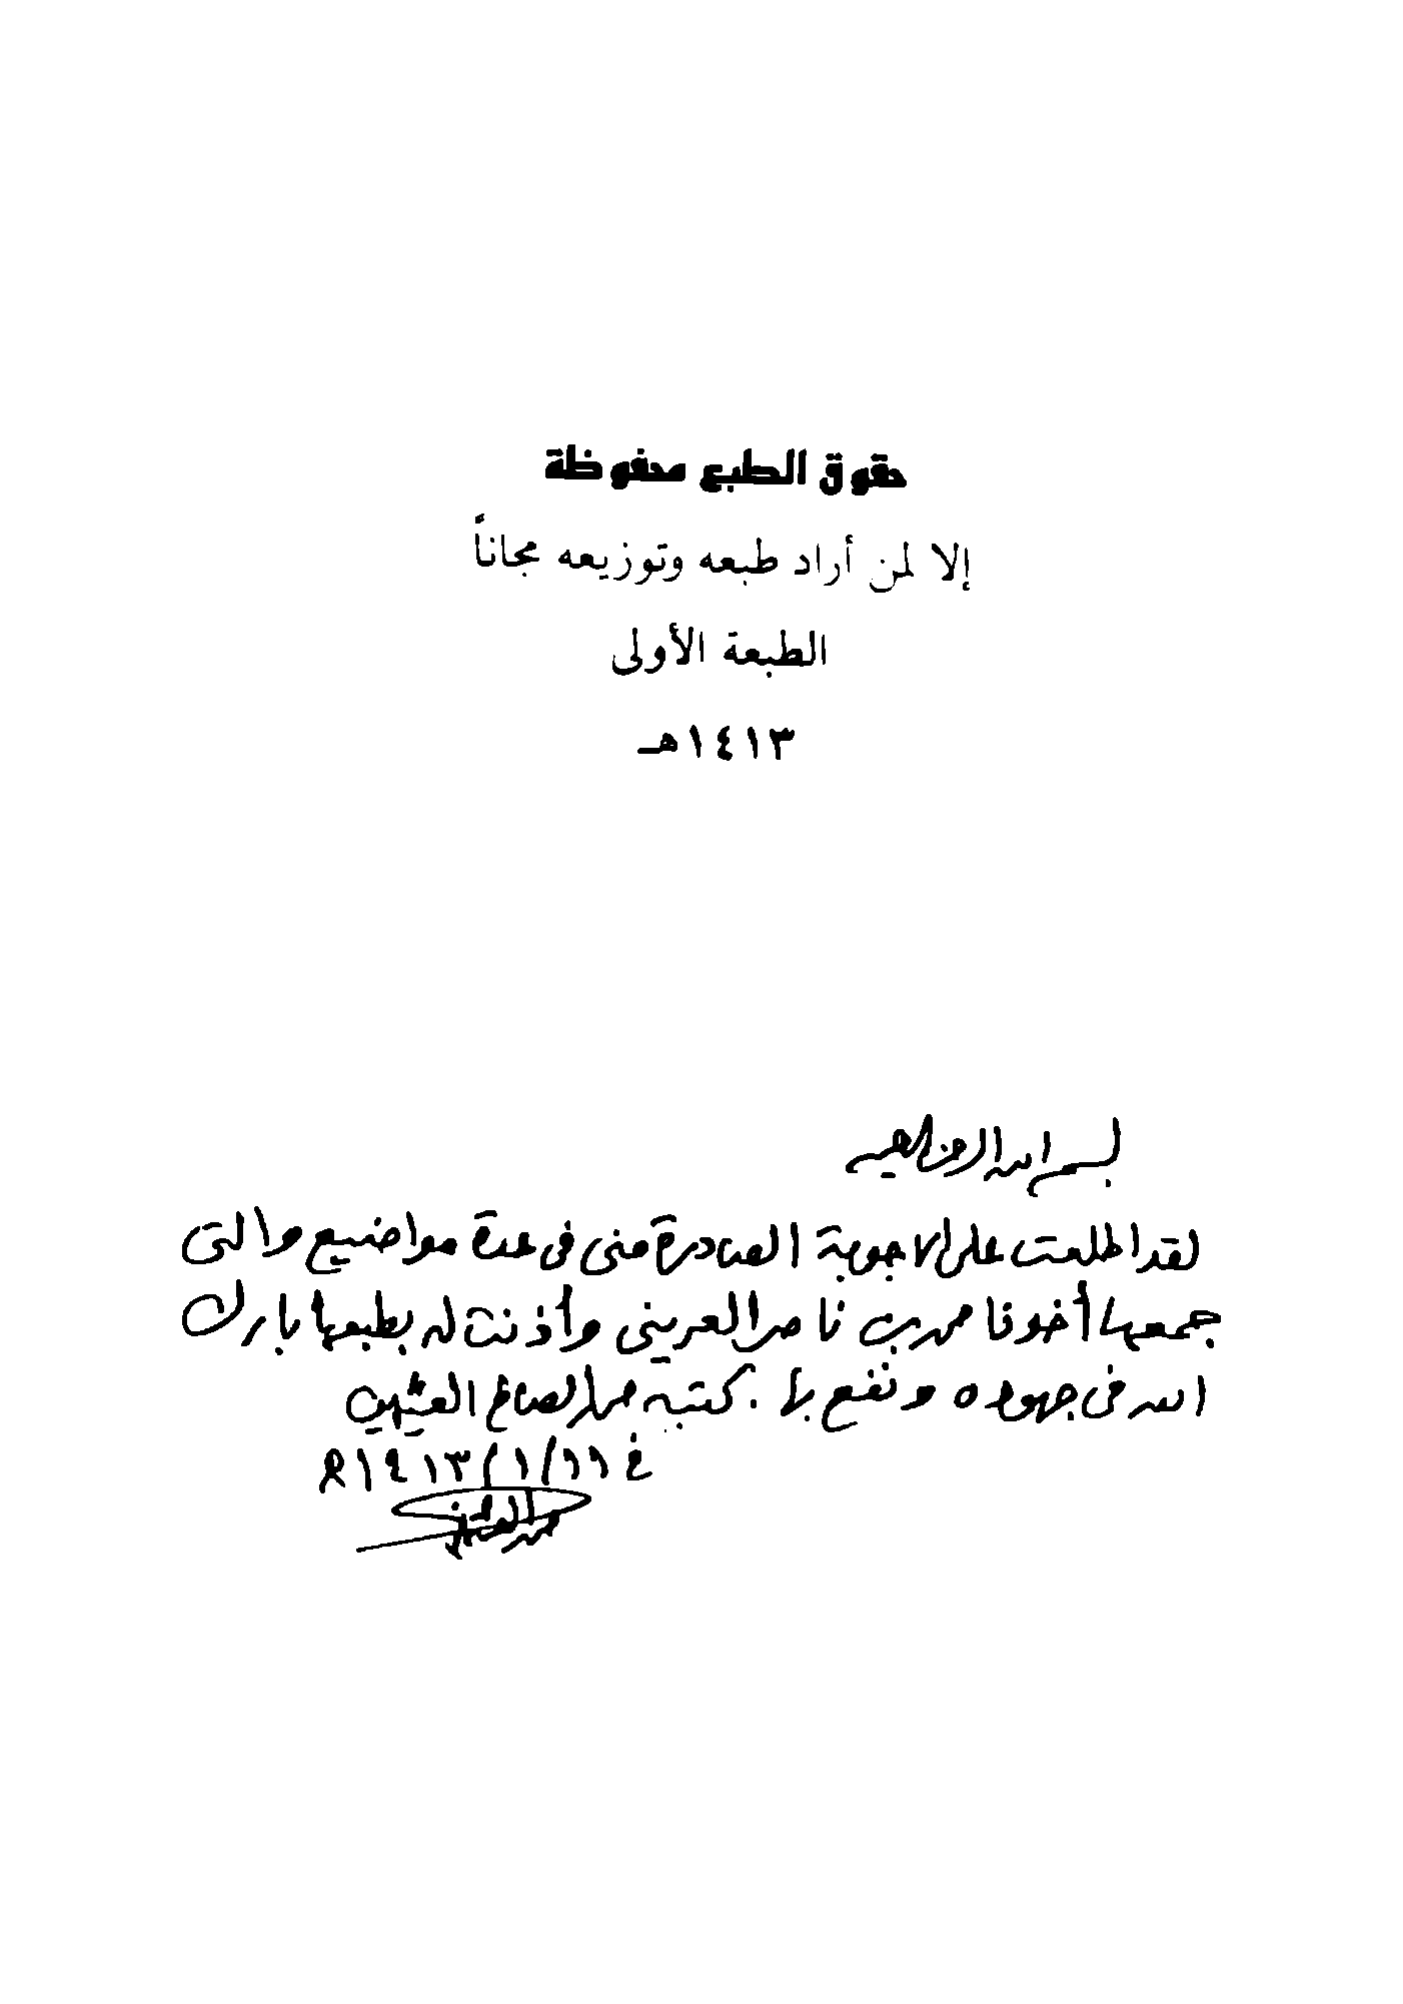 حقوق الطبع محفوظة
إلا لمن أراد طبعه وتوزيعه مجاناً
الطبعة الأولى
١٤١٣هـ
بسم الله الرحمن الرحيم
لقد اطلعت على الاجوبة الصادرة منى فى عدة مواضيع والتى
جمعها أخونا محمد بن ناصر العرينى وأذنت له بطبعها بارك
الله فى جهوده ونفع بها . كتبه محمد الصالح العثيمين
فى ١٤١٣/١/٢٩ه
محمد العثيمين